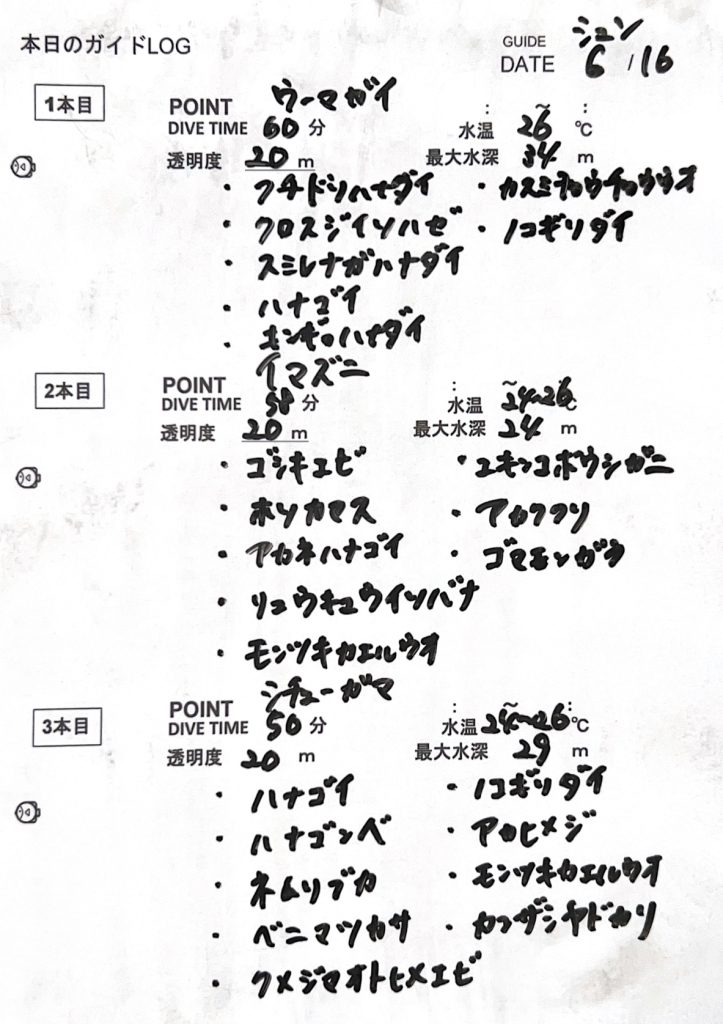 本日のガイドLOG
GUIDE シュン
DATE 6/16
1本目
POINT ウーマガイ
: ~ :
DIVE TIME 60 分 水温 26 ℃
透明度 20 m 最大水深 34 m
・フチドリハナダイ ・カスミチョウチョウウオ
・クロスジイソハゼ ・ノコギリダイ
・スミレナガハナダイ
・ハナゴイ
・キンギョハナダイ
2本目
POINT イマズニ
: ~
DIVE TIME 58 分 水温 24~26 ℃
透明度 20 m 最大水深 24 m
・ゴシキエビ ・ユキンコボウシガニ
・ホソカマス ・アカククリ
・アカネハナゴイ ・ゴマモンガラ
・リュウキュウイソバナ
・モンツキカエルウオ
3本目
POINT シチューガマ
: ~ :
DIVE TIME 50 分 水温 24~26 ℃
透明度 20 m 最大水深 29 m
・ハナゴイ ・ノコギリダイ
・ハナゴンベ ・アカヒメジ
・ネムリブカ ・モンツキカエルウオ
・ベニマツカサ ・カンザシヤドカリ
・クメジマオトヒメエビ